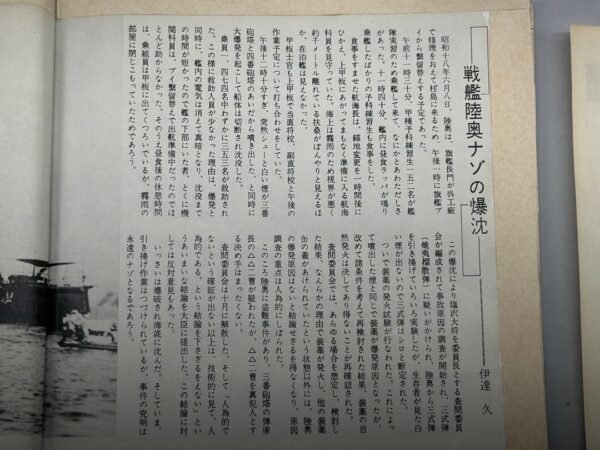 戦艦陸奥ナゾの爆沈
伊達 久
昭和十八年六月八日、陸奥は、旗艦長門が呉工廠
で修理をおえて柱島に来るため、午後一時に旗艦ブ
イから繋留替えする予定であった。
午前十一時三十分、甲種予科練習生一五二名が艦
隊実習のため乗艦して来て、なにかとあわただしさ
があった。十一時四十分、艦内に昼食ラッパが鳴り
乗艦したばかりの予科練習生も食事をした。
食事をすませた航海長は、錨地変更を一時間後に
ひかえ、上甲板にあがってまもなく準備に入る航海
科員を見守っていた。海上は霧雨のため視界が悪く
約千メートル離れている扶桑がぼんやりと見えるほ
か、在泊艦は見えなかった。
甲板士官も上甲板で当直将校、副直将校と午後の
作業予定について打ち合わせをしていた。
午後十二時十分すぎ、突然シューと白い煙が三番
砲塔と四番砲塔のあいだから噴き出した、と同時に
大爆発を起こして船体は切断され沈没した。
乗員一、四七四名中わずか三五三名が救助され
た。この様に救助人員が少なかった理由は、爆発と
同時に、艦内の電気は消えて真暗となり、沈没まで
の時間が短かったので艦の下部にいた者、とくに機
関科員は、ブイ繋留替えで出航準備中だったのでほ
とんど助からなかった。そのうえ昼食後の休憩時間
は、乗組員は甲板に出てくつろいでいるが、霧雨の
部屋に閉じこもっていたためであろう。
この爆沈により塩沢大将を委員長とする査問委員
会が編成されて事故原因の調査が開始され、三式弾
(焼夷榴散弾)に疑いがかけられ、陸奥から三式弾
を引き揚げていろいろ実験したが、生存者が見た白
い煙が出ないので三式弾はシロと断定された。
ついで装薬の発火試験が行なわれた。これによっ
て噴出した煙と同じで装薬が爆発原因となったが、
改めて諸条件を考えて再検討された結果、装薬の自
然発火は決してあり得ないことが再確認された。
査問委員会では、あらゆる場合を想定し、検討し
た結果、なんらかの理由で装薬が発火し、他の装薬
缶の蓋があけられていたという状態以外には、陸奥
の爆発原因はないと結論せざるを得なくなり、原因
調査の重点は人為的にしぼられた。
このころ陸奥に盗難事件があり、三番砲塔の弾庫
長の△△二曹が疑われたが、△△二曹を真犯人とす
る決め手はまったくない。
査問委員会は十月に解散した。そして「人為的で
ないという確証が出ない以上は、技術的に見て、人
為的である、という結論を下さざるをえない」とい
うあいまいな結論を大臣に提出した。この結論に対
しては反対意見もあった。
いっさいは爆破され、海底に沈んだ。そしていま、
引き揚げ作業はつづけられているが、事件の究明は
永遠のナゾとなるであろう。